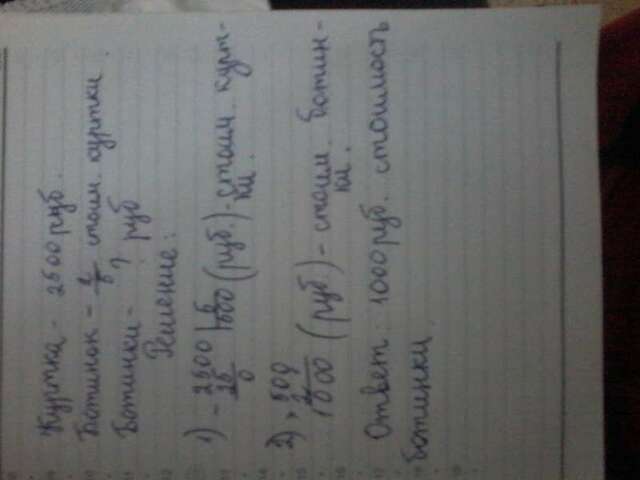 Куртка - 2500 руб.
Ботинок - 2/5 стоим. куртки.
Ботинки - ? руб
Решение:
1) - 2500 | 5
25 500 (руб.) - стоим. курт-
0 ки.
2) × 500
2
1000 (руб.) - стоим. ботин-
ки.
Ответ: 1000 руб. стоимость
ботинки.